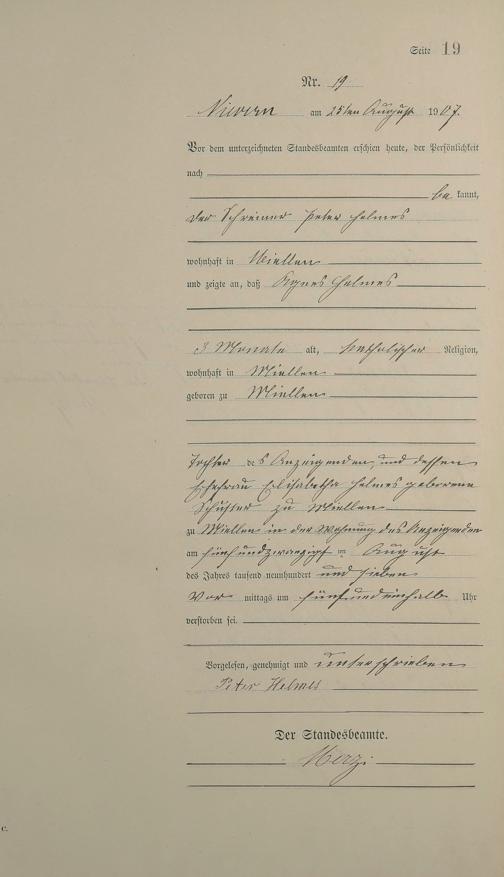 Seite 19
Nr. 19
Nievern am 25ten August 1907.
Vor dem unterzeichneten Standesbeamten erschien heute, der Persönlichkeit
nach
be kannt,
der Schreiner Peter Helmes
wohnhaft in Miellen
und zeigte an, daß Agnes Helmes
3 Monate alt, katholischer Religion,
wohnhaft in Miellen
geboren zu Miellen
Tochter des Anzeigenden und dessen
Ehefrau Elisabetha Helmes geborene
Schuster zu Miellen
zu Miellen in der Wohnung des Anzeigenden
am fünfundzwanzigsten August
des Jahres tausend neunhundert und sieben
Vor mittags um fünfundeinhalb Uhr
verstorben sei.
Vorgelesen, genehmigt und unterschrieben
Peter Helmes
Der Standesbeamte.
Merz.
c.